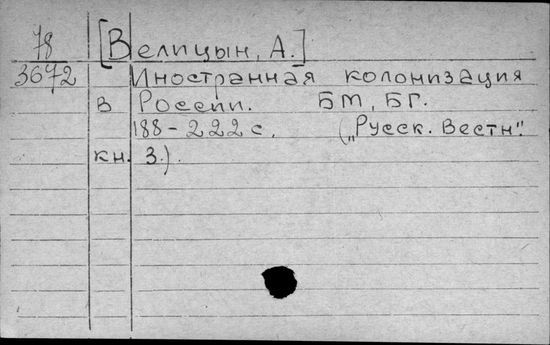 78 [Велицын, А.]
3672 Иностранная колонизация
в России. БМ, БГ.
188-222 с. („Русск. Вестн."
кн. 3.).